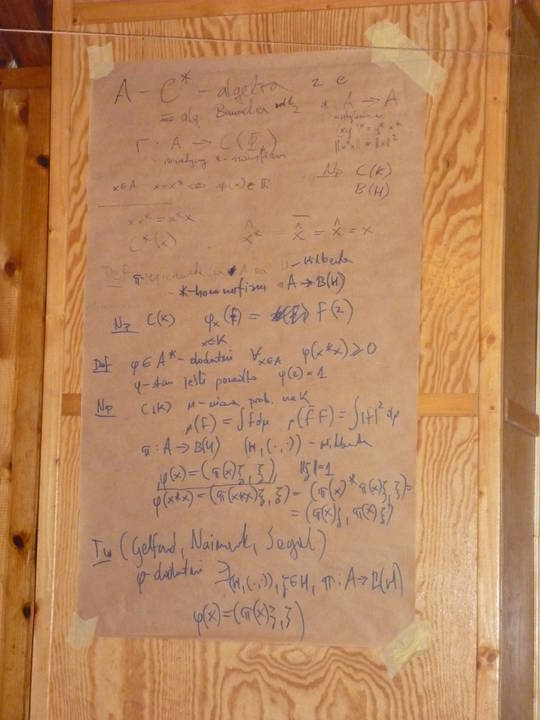 A – C* – algebra z e
= alg Banacha
* A → A
(xy)* = y* x*
‖x*x‖ = ‖x‖²
Γ : A → C(Φ_A)
Np C(K)
B(H)
x∈A x=x* ⇔ φ(x)∈ℝ
xx* = x*x
C*(x)
Def π-reprezentacja A na H – Hilberta
*-homomorfizm A → B(H)
Np C(K) φ_x(F) = F(x)
x∈K
Def φ∈A* – dodatni ∀_{x∈A} φ(x*x) ≥ 0
φ – stan jeśli ponadto φ(e) = 1
Np C(K) μ – miara prob. na K
μ(F) = ∫F dμ μ(F̄ F) = ∫|F|² dμ
π : A → B(H) (H, (·,·)) – Hilberta
φ(x) = (π(x)ξ, ξ) ‖ξ‖ = 1
φ(x*x) = (π(x*x)ξ, ξ) = (π(x)*π(x)ξ, ξ) =
= (π(x)ξ, π(x)ξ)
Tw (Gelfand, Naimark, Segal)
φ – dodatni ∃ (H, (·,·)), ξ∈H, π : A → B(H)
φ(x) = (π(x)ξ, ξ)